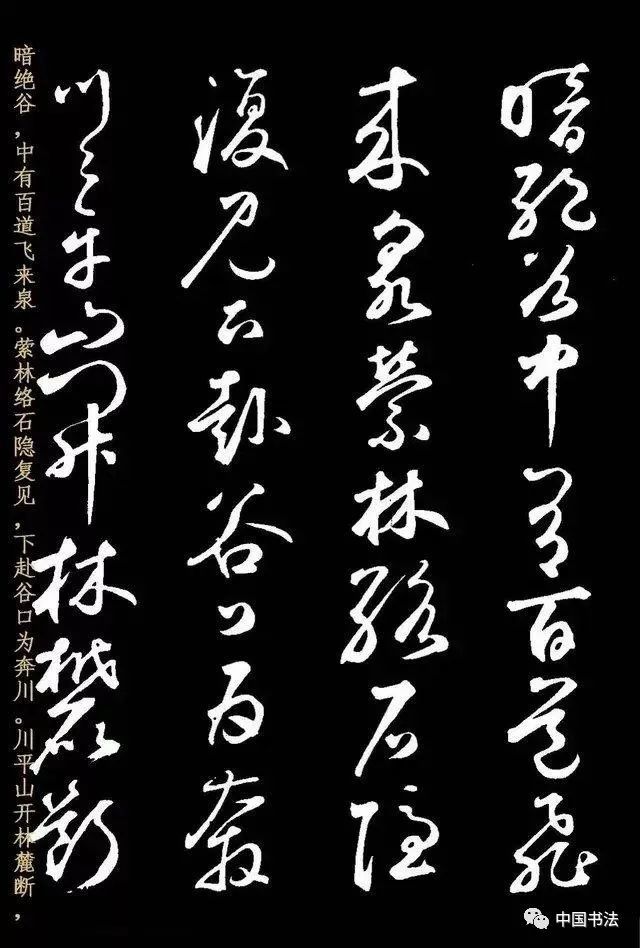 暗絕谷中有百道飛
來泉縈林絡石隱
復見下赴谷口為奔
川〻平山開林麓斷
暗绝谷，中有百道飞来泉。萦林络石隐复见，下赴谷口为奔川。川平山开林麓断，
中国书法